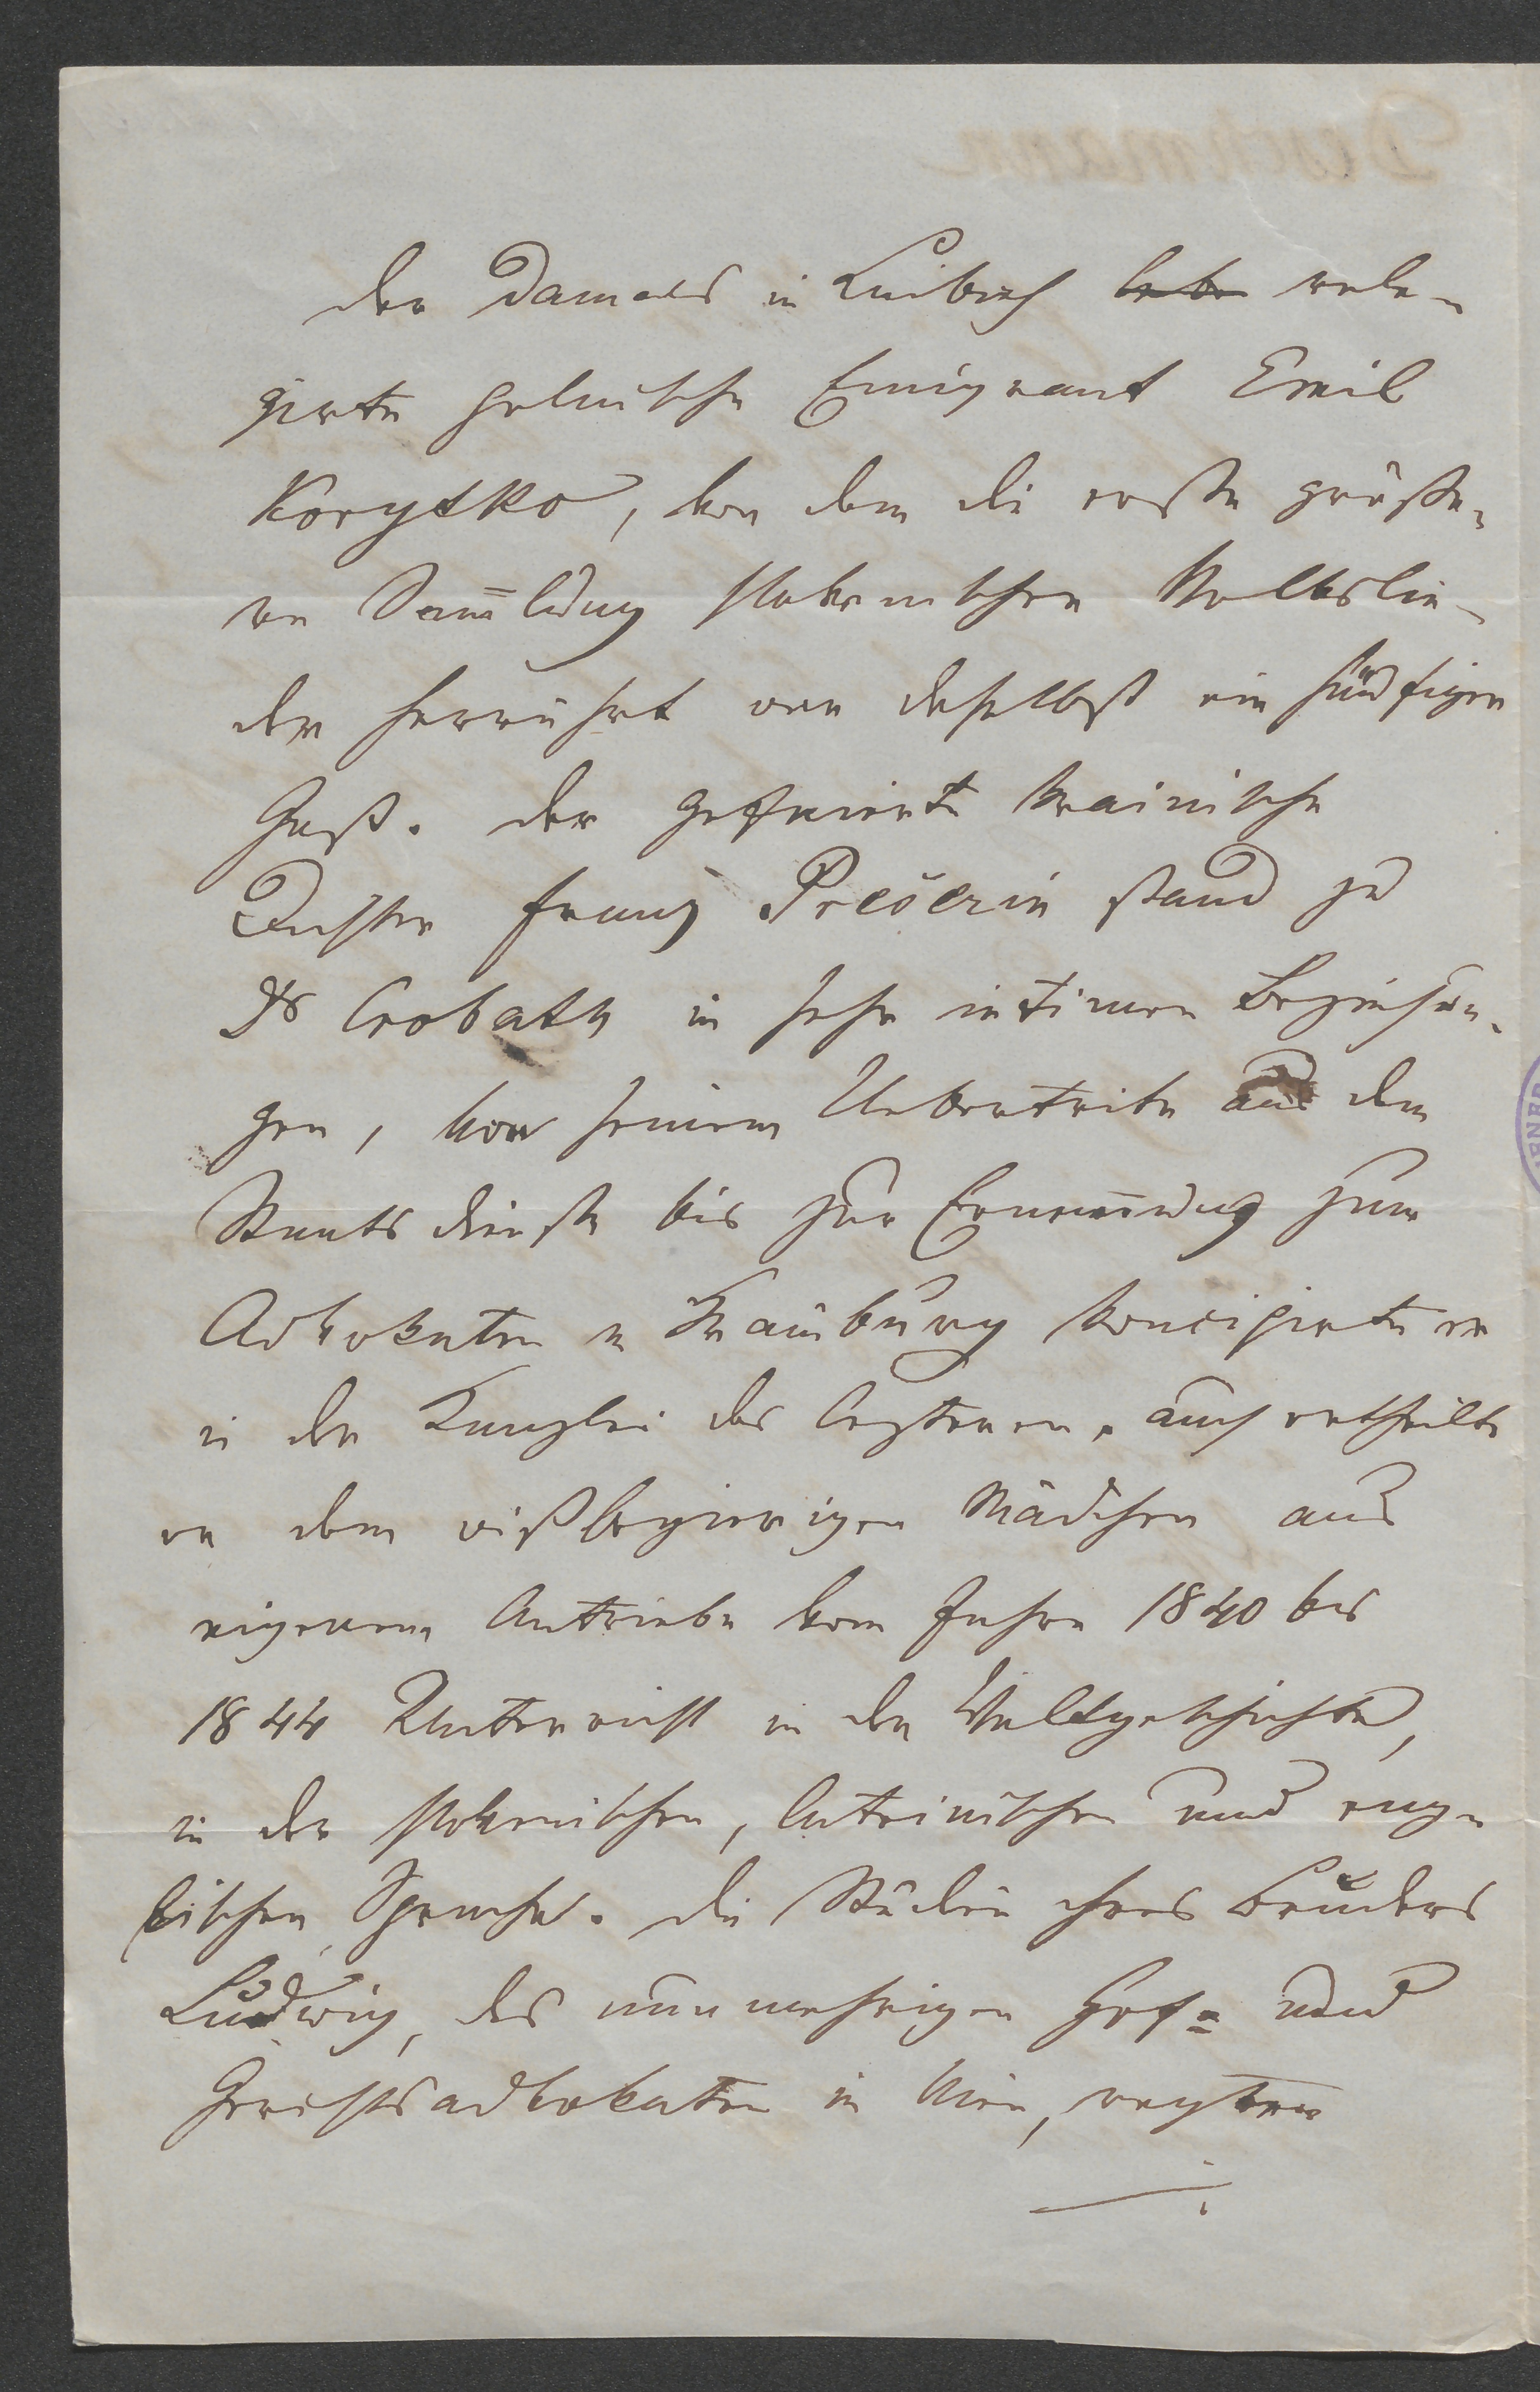 der damals in Laibach lebe rele-
girte polnische Emigrant Emil
Korytko, von dem die erste größe-
re Sam̅lung slovenischer Volkslie-
der herrührt war daselbst ein häufiger
Gast. Der gefeierte krainische
Dichter Franz Prešerin stand zu
Dr Crobath in sehr intimen Beziehun-
gen, von seinem Uebertritte aus dem
Staatsdienste bis zur Ernen̅ung zum
Advokaten in Krainburg koncipirte er
in der Kanzlei des Letzteren, auch ertheilte
er dem wißbegierigen Mädchen aus
eigenem Antriebe vom Jahre 1840 bis
1844 Unterricht in der Weltgeschichte,
in der slovenischen, lateinischen und eng-
lischen Sprache. Die Studien ihres Bruders
Ludwig, des nunmehrigen Hof= und
Gerichtsadvokaten in Wien, regten
./.